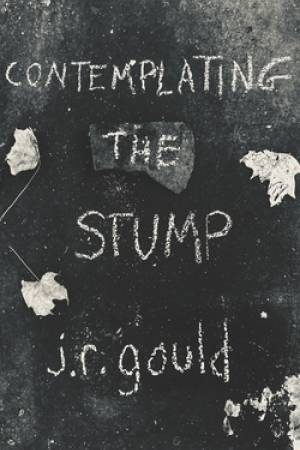 CONTEMPLATING
THE
STUMP
j.r. gould